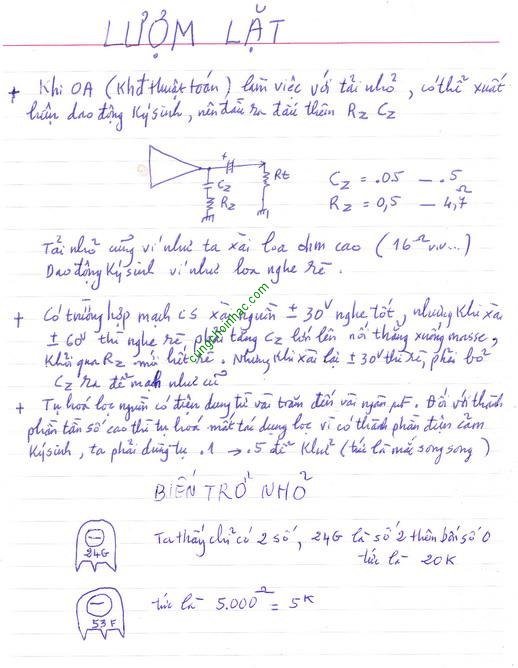 LƯỢM LẶT
+ Khi OA (Khđ thuật toán) làm việc với tải nhỏ, có thể xuất
hiện dao động Ký sinh, nên đầu ra đấu thêm Rz Cz
+
Cz
Rz
Rt
Cz = .05 — .5
Rz = 0,5 — 4,7Ω
Tải nhỏ cũng ví như ta xài loa ohm cao (16Ω v.v...)
Dao động Ký sinh ví như loa nghe rè.
+ Có trường hợp mạch CS xài nguồn ± 30V nghe tốt, nhưng Khi xài
± 60V thì nghe rè, phải tăng Cz lớn lên nối thẳng xuống masse,
Khỏi qua Rz mới hết rè. Nhưng Khi xài lại ± 30V thì rè, phải bỏ
Cz ra để mạch như cũ
+ Tụ hoá lọc nguồn có điện dung từ vài trăm đến vài ngàn µf. Đối với thành
phần tần số cao thì tụ hoá mất tác dụng lọc vì có thành phần điện cảm
Ký sinh, ta phải dùng tụ .1 → .5 để Khử (tức là mắc song song)
BIẾN TRỞ NHỎ
24G
Ta thấy chỉ có 2 số, 24G là số 2 thêm bốn số 0
tức là 20K
53F
tức là 5.000Ω = 5K
cungchoinhac.com